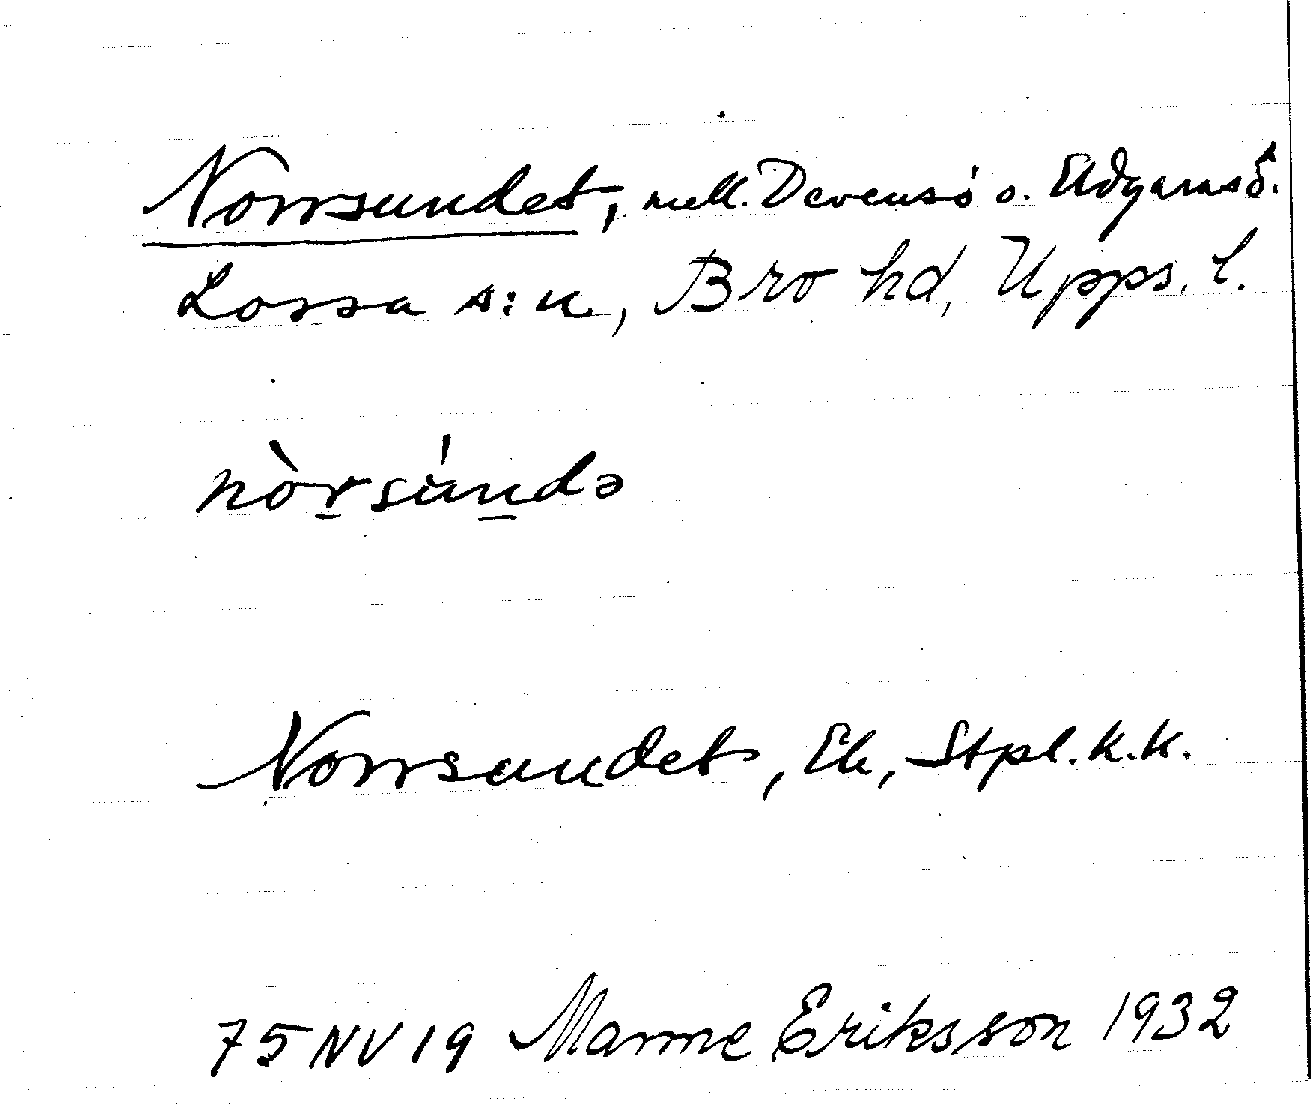 Norrsundet, mell. Dävensö o. Ådgarnsö.
Lossa s:n, Bro hd, Upps. l.
nòrsúndə
Norrsundet, Ek, Stpl. k.k.
75 NV 19 Manne Eriksson 1932